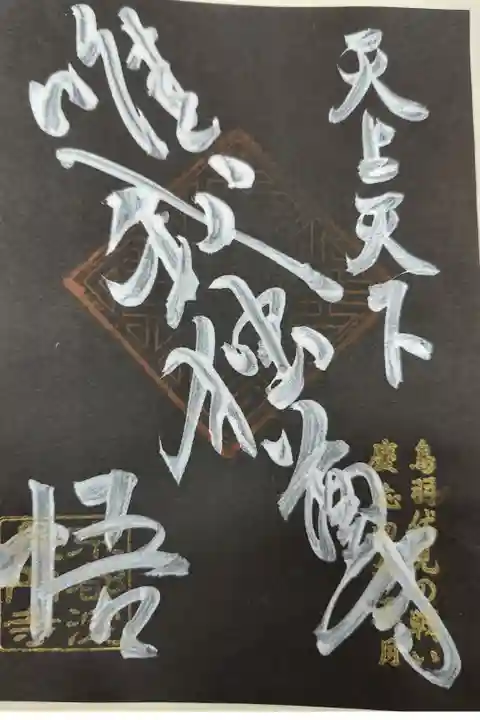 天上天下
唯我独尊
悟
鳥羽伏見の戦い
慶応四年